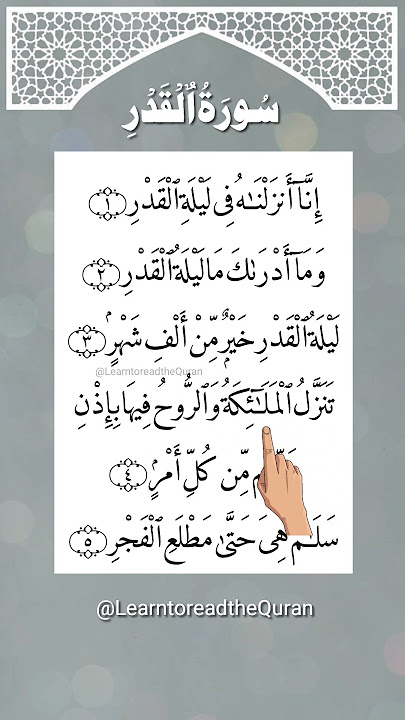 سُورَةُ ٱلْقَدْرِ
إِنَّآ أَنزَلْنَـٰهُ فِى لَيْلَةِ ٱلْقَدْرِ ١
وَمَآ أَدْرَىٰكَ مَا لَيْلَةُ ٱلْقَدْرِ ٢
لَيْلَةُ ٱلْقَدْرِ خَيْرٌ مِّنْ أَلْفِ شَهْرٍ ٣
@LearntoreadtheQuran
تَنَزَّلُ ٱلْمَلَـٰٓئِكَةُ وَٱلرُّوحُ فِيهَا بِإِذْنِ
مِّن كُلِّ أَمْرٍ ٤
سَلَـٰمٌ هِىَ حَتَّىٰ مَطْلَعِ ٱلْفَجْرِ ٥
@LearntoreadtheQuran